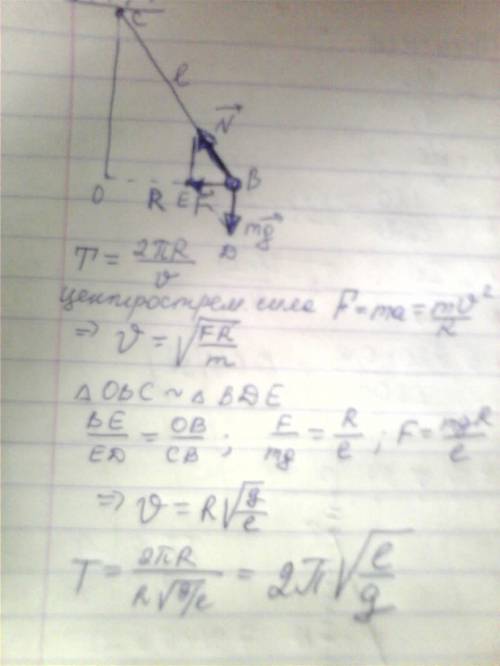 C
l
N
O R E F B
mg
D
T = 2πR/v
центрострем. сила F = ma = mv²/R
⇒ v = √(FR/m)
△ OBC ~ △ BDE
BE/ED = OB/CB ; F/mg = R/l ; F = mgR/l
⇒ v = R√(g/l)
T = 2πR/(R√(g/l)) = 2π√(l/g)